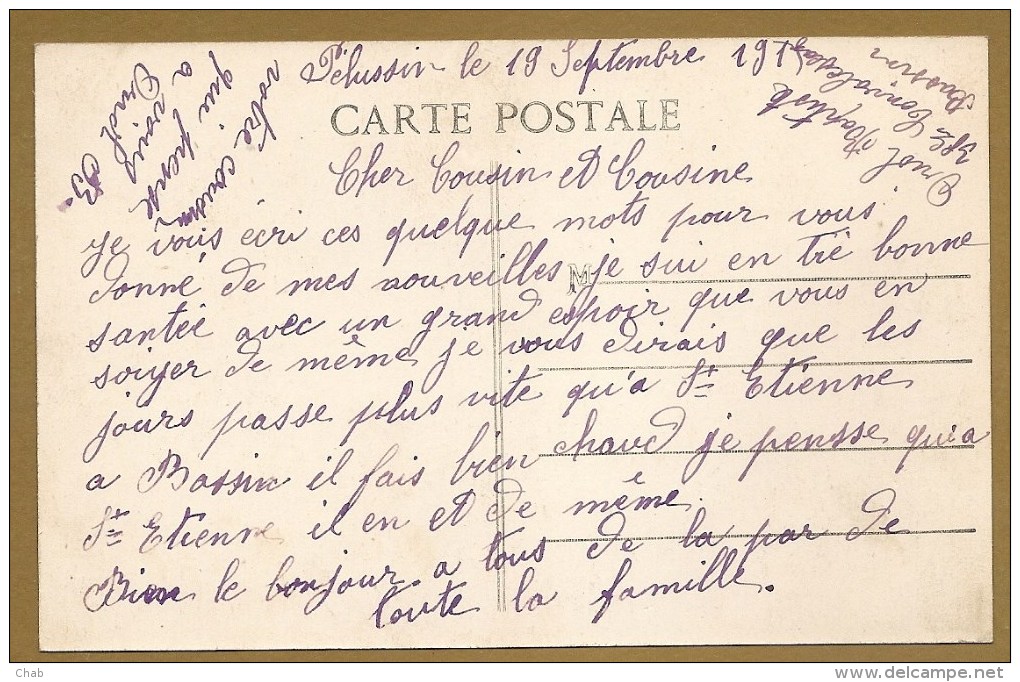 Pélussin le 19 Septembre 191
CARTE POSTALE
Cher Cousin et Cousine
je vous écri ces quelque mots pour vous
donné de mes nouveilles je sui en trè bonne
M
santée avec un grand espoir que vous en
soiyer de même je vous dirais que les
jours passe plus vite qu'a St Etienne
a Bassin il fais bien chaud je pensse qu'a
St Etienne il en et de même
Bien le bonjour a tous de la par de
toute la famille.
votre cousin
qui pense
a vous
B.
Chab
http://www.delcampe.net